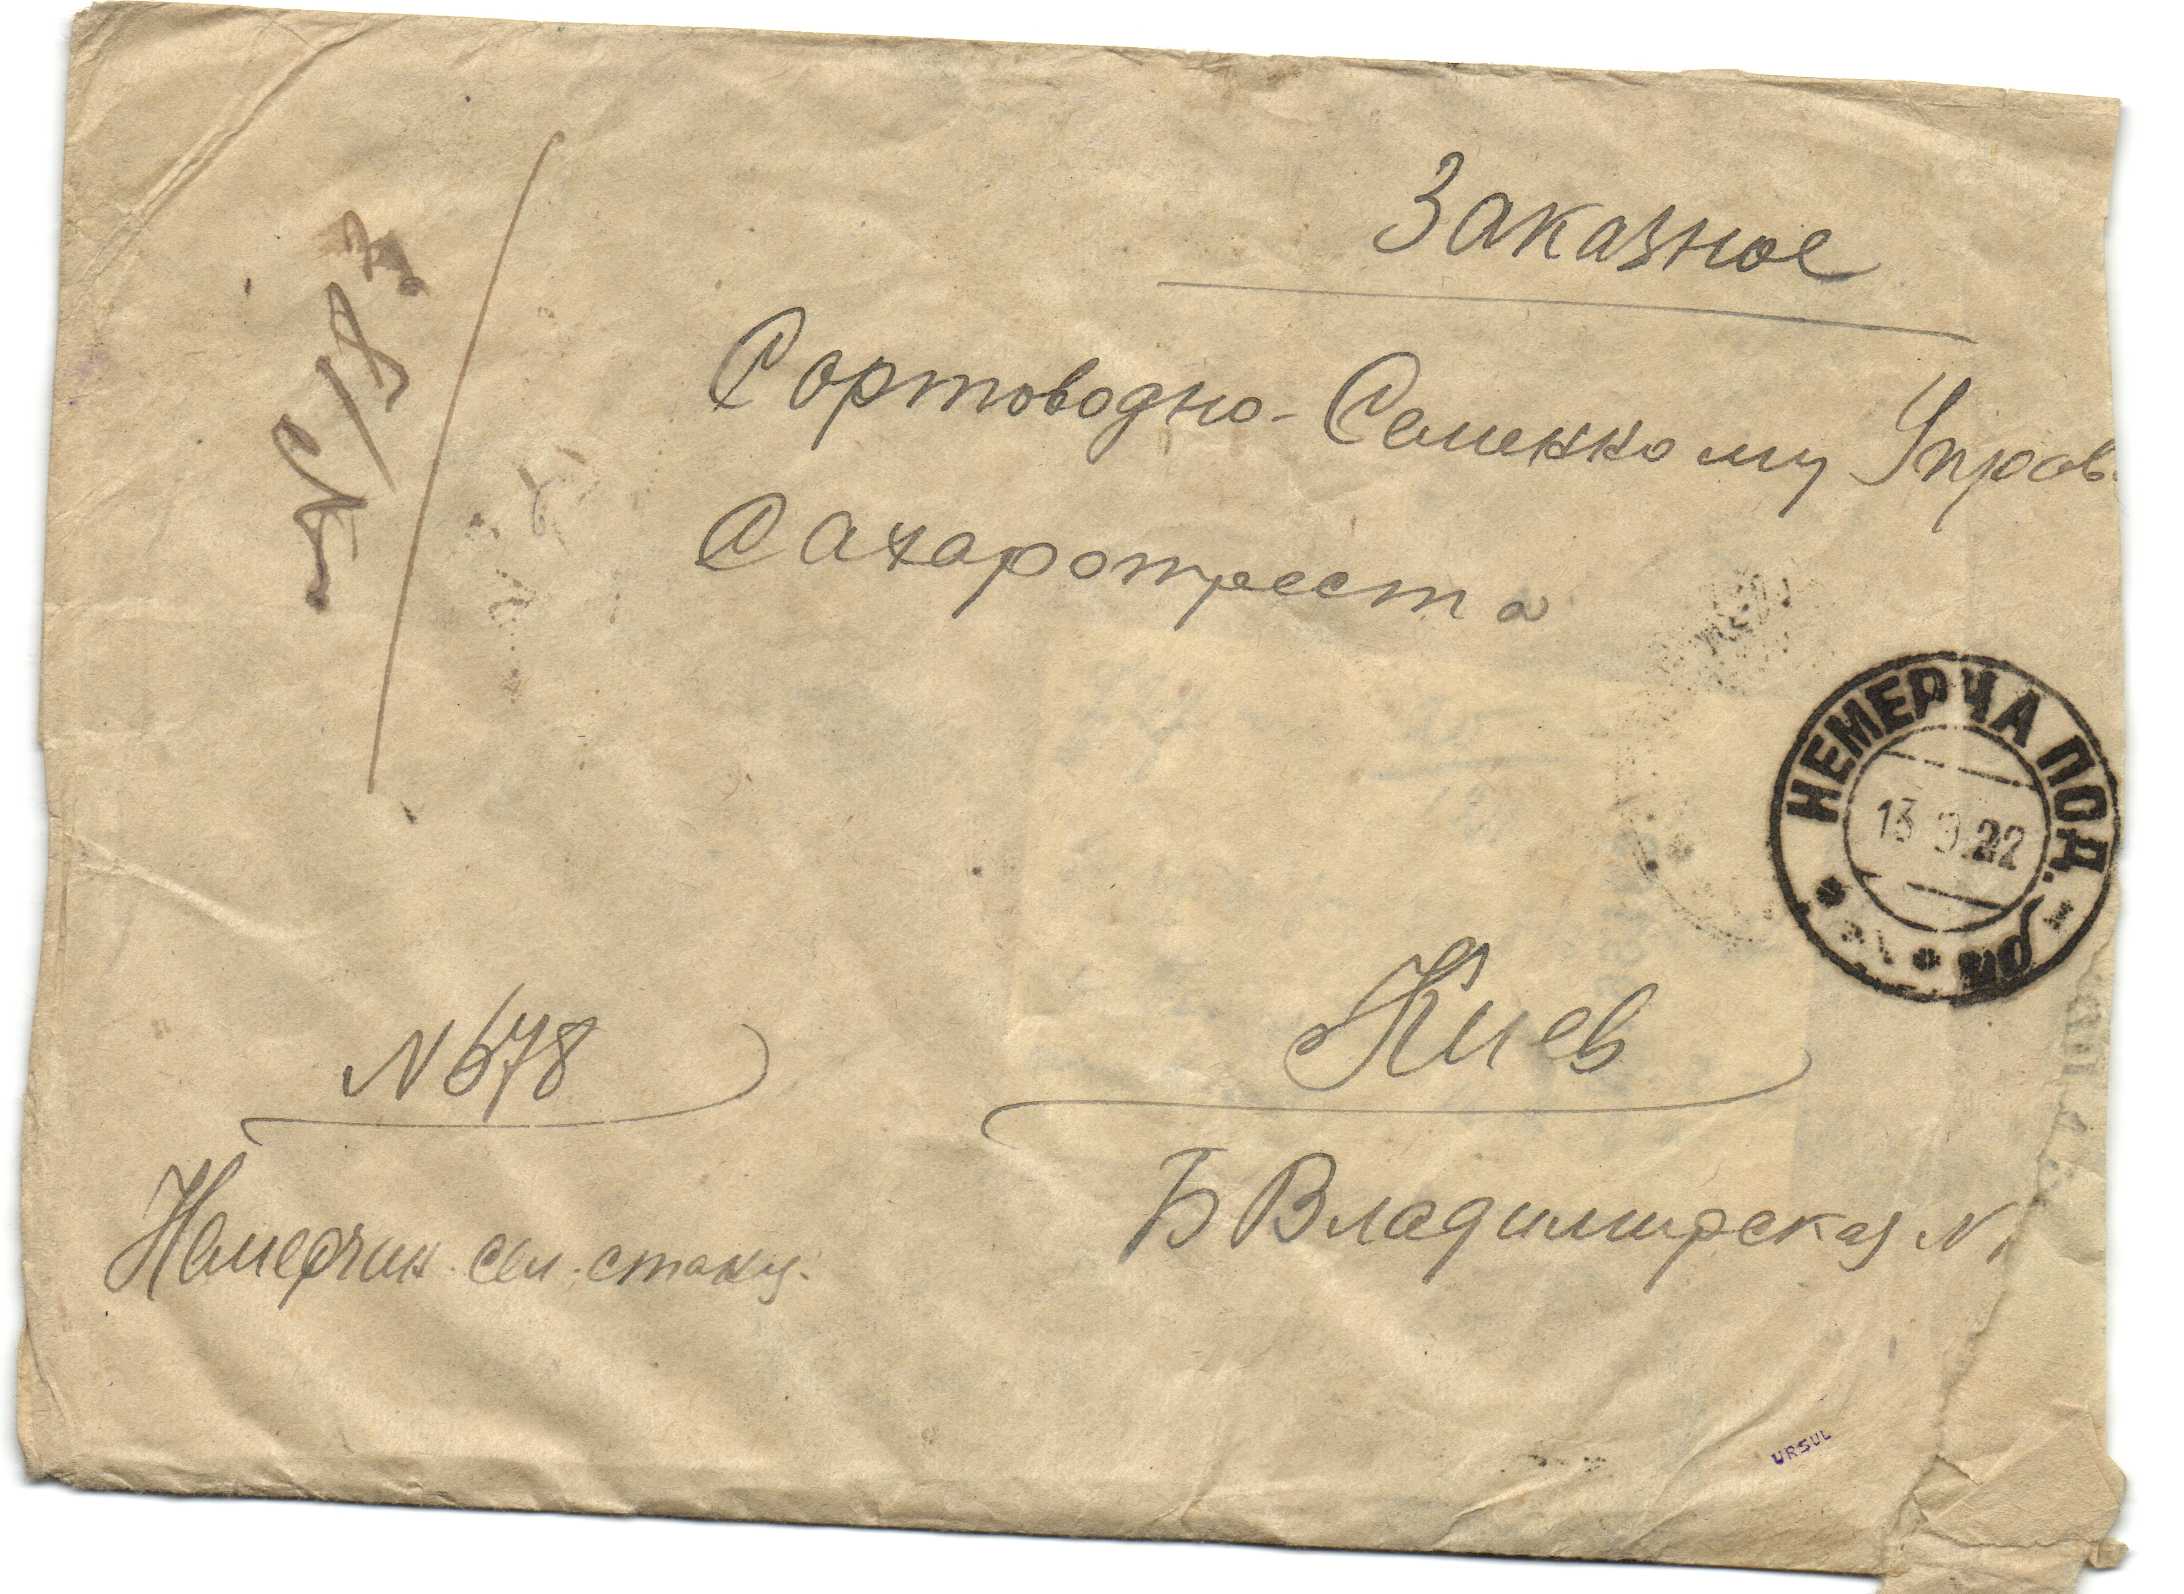 Заказное
Сортоводно-Семенному Управ
Сахаротреста
НЕМЕРЧА ПОД.
13 9 22
Киев
Б Владимирская N
N 678
Немерчин. сел. станц.
URSUL